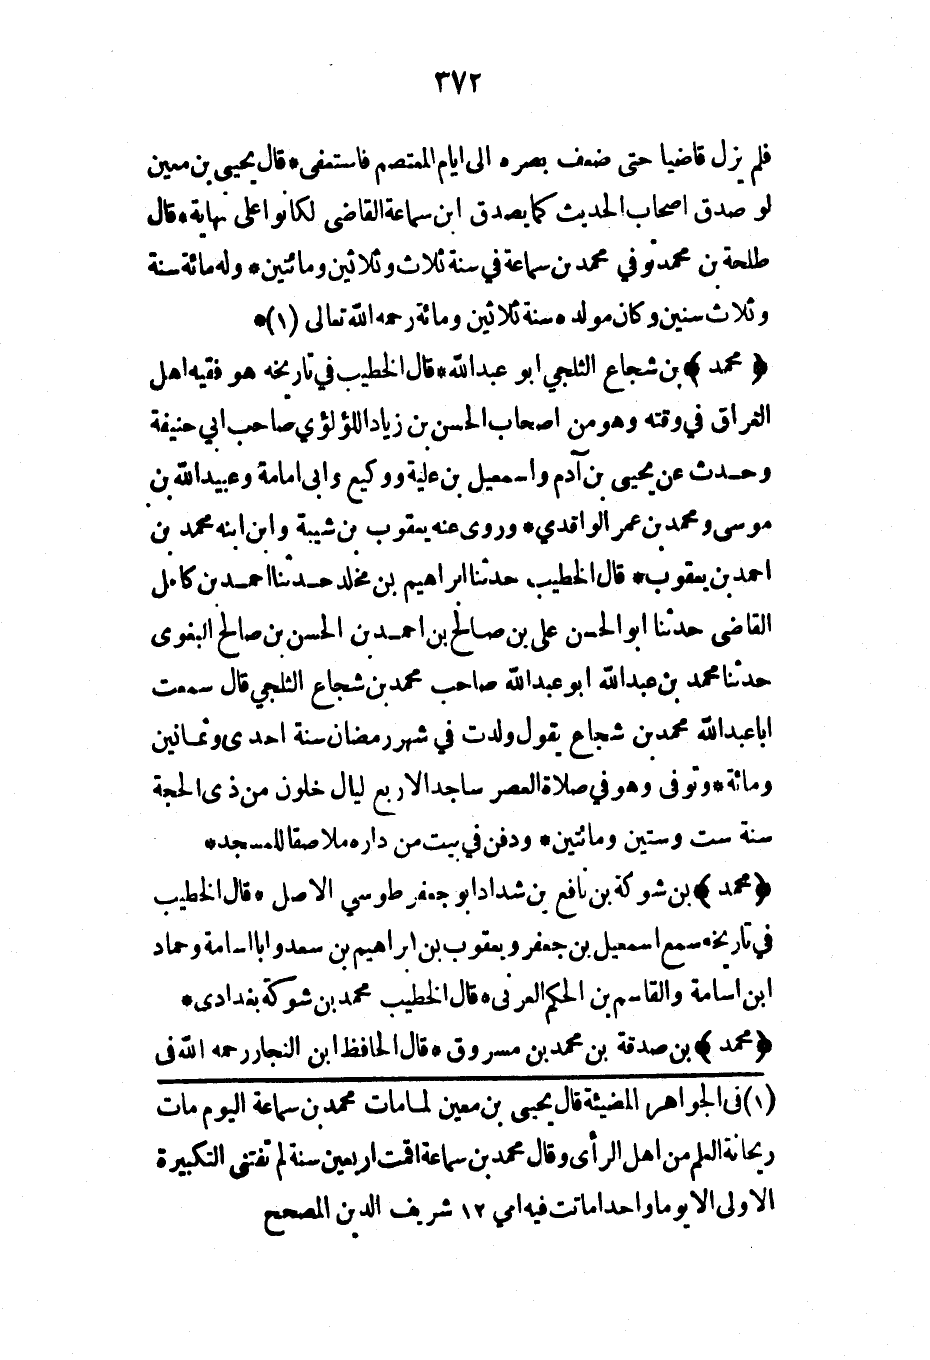 ٣٧٢
فلم يزل قاضيا حتى ضعف بصره الى ايام المعتصم فاستعفى * قال يحيى بن معين
لو صدق اصحاب الحديث كما يصدق ابن سماعة القاضى لكانوا على نهاية * قال
طلحة بن محمد توفي محمد بن سماعة في سنة ثلاث وثلاثين ومائتين * وله مائة سنة
وثلاث سنين وكان مولده سنة ثلاثين ومائة رحمه الله تعالى (١) *
﴿ محمد ﴾ بن شجاع الثلجي ابو عبدالله * قال الخطيب في تاريخه هو فقيه اهل
العراق في وقته وهو من اصحاب الحسن بن زياد اللؤلؤي صاحب ابي حنيفة
وحدث عن يحيى بن آدم واسمعيل بن علية ووكيع وابى امامة وعبيدالله بن
موسى ومحمد بن عمر الواقدي * وروى عنه يعقوب بن شيبة وابن ابنه محمد بن
احمد بن يعقوب * قال الخطيب حدثنا ابراهيم بن مخلد حدثنا احمد بن كامل
القاضى حدثنا ابو الحسن على بن صالح بن احمد بن الحسن بن صالح البغوى
حدثنا محمد بن عبدالله ابو عبدالله صاحب محمد بن شجاع الثلجي قال سمعت
ابا عبدالله محمد بن شجاع يقول ولدت في شهر رمضان سنة احدى وثمانين
ومائة * وتوفى وهو في صلاة العصر ساجدا لاربع ليال خلون من ذى الحجة
سنة ست وستين ومائتين * ودفن في بيت من داره ملاصقا للمسجد *
﴿ محمد ﴾ بن شوكة بن نافع بن شداد ابو جعفر طوسي الاصل * قال الخطيب
في تاريخه سمع اسمعيل بن جعفر ويعقوب بن ابراهيم بن سعد وابا اسامة وحماد
ابن اسامة والقاسم بن الحكم العرنى * قال الخطيب محمد بن شوكة بغدادى *
﴿ محمد ﴾ بن صدقة بن محمد بن مسروق * قال الحافظ ابن النجار رحمه الله فى
(١) فى الجواهر المضيئة قال يحيى بن معين لما مات محمد بن سماعة اليوم مات
ريحانة العلم من اهل الرأى وقال محمد بن سماعة اقمت اربعين سنة لم تفتنى التكبيرة
الاولى الا يوما واحدا ماتت فيه امي ١٢ شريف الدين المصحح